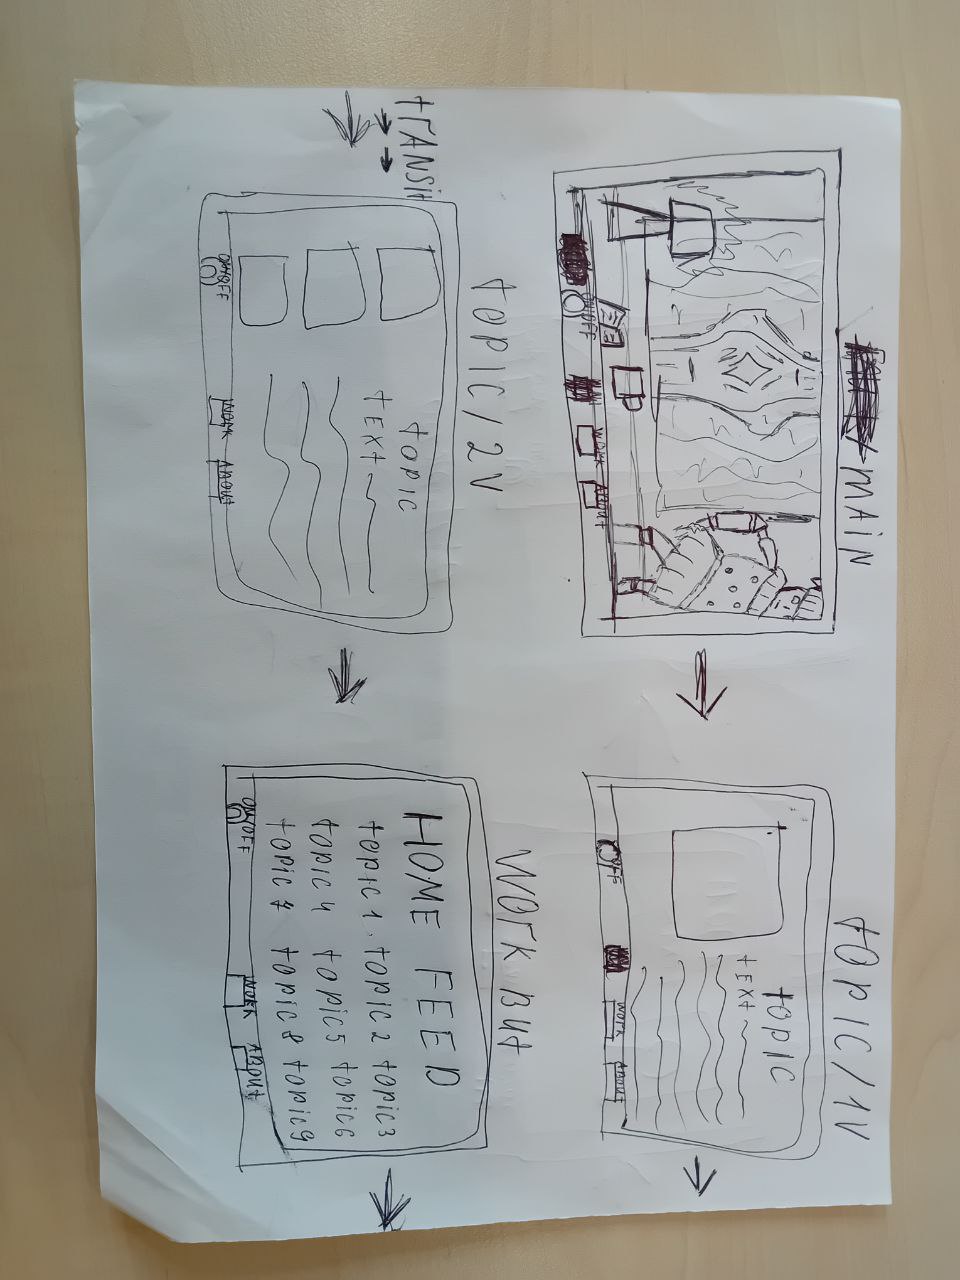 MAIN
ON/OFF
WORK
ABOUT
TOPIC/1V
TOPIC
TEXT
OFF
WORK
ABOUT
TRANSIT
TOPIC/2V
TOPIC
TEXT
ON/OFF
WORK
ABOUT
WORK BUT
HOME FEED
TOPIC 1. TOPIC 2 TOPIC 3
TOPIC 4 TOPIC 5 TOPIC 6
TOPIC 7 TOPIC 8 TOPIC 9
ON/OFF
WORK
ABOUT